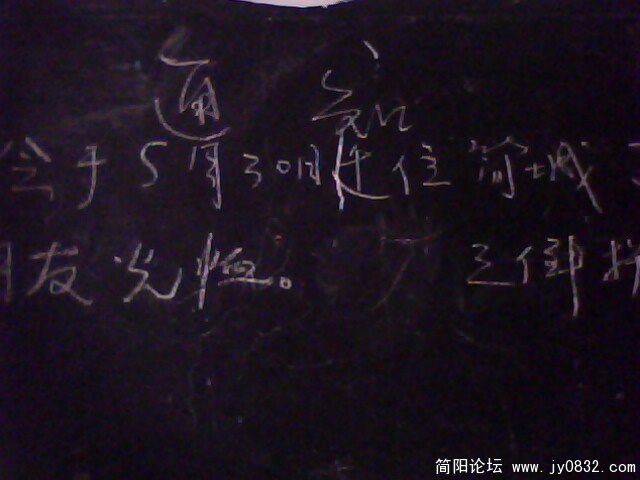 通知
会于5月30日迁住简城
朋友光临。
简阳论坛 www.jy0832.com